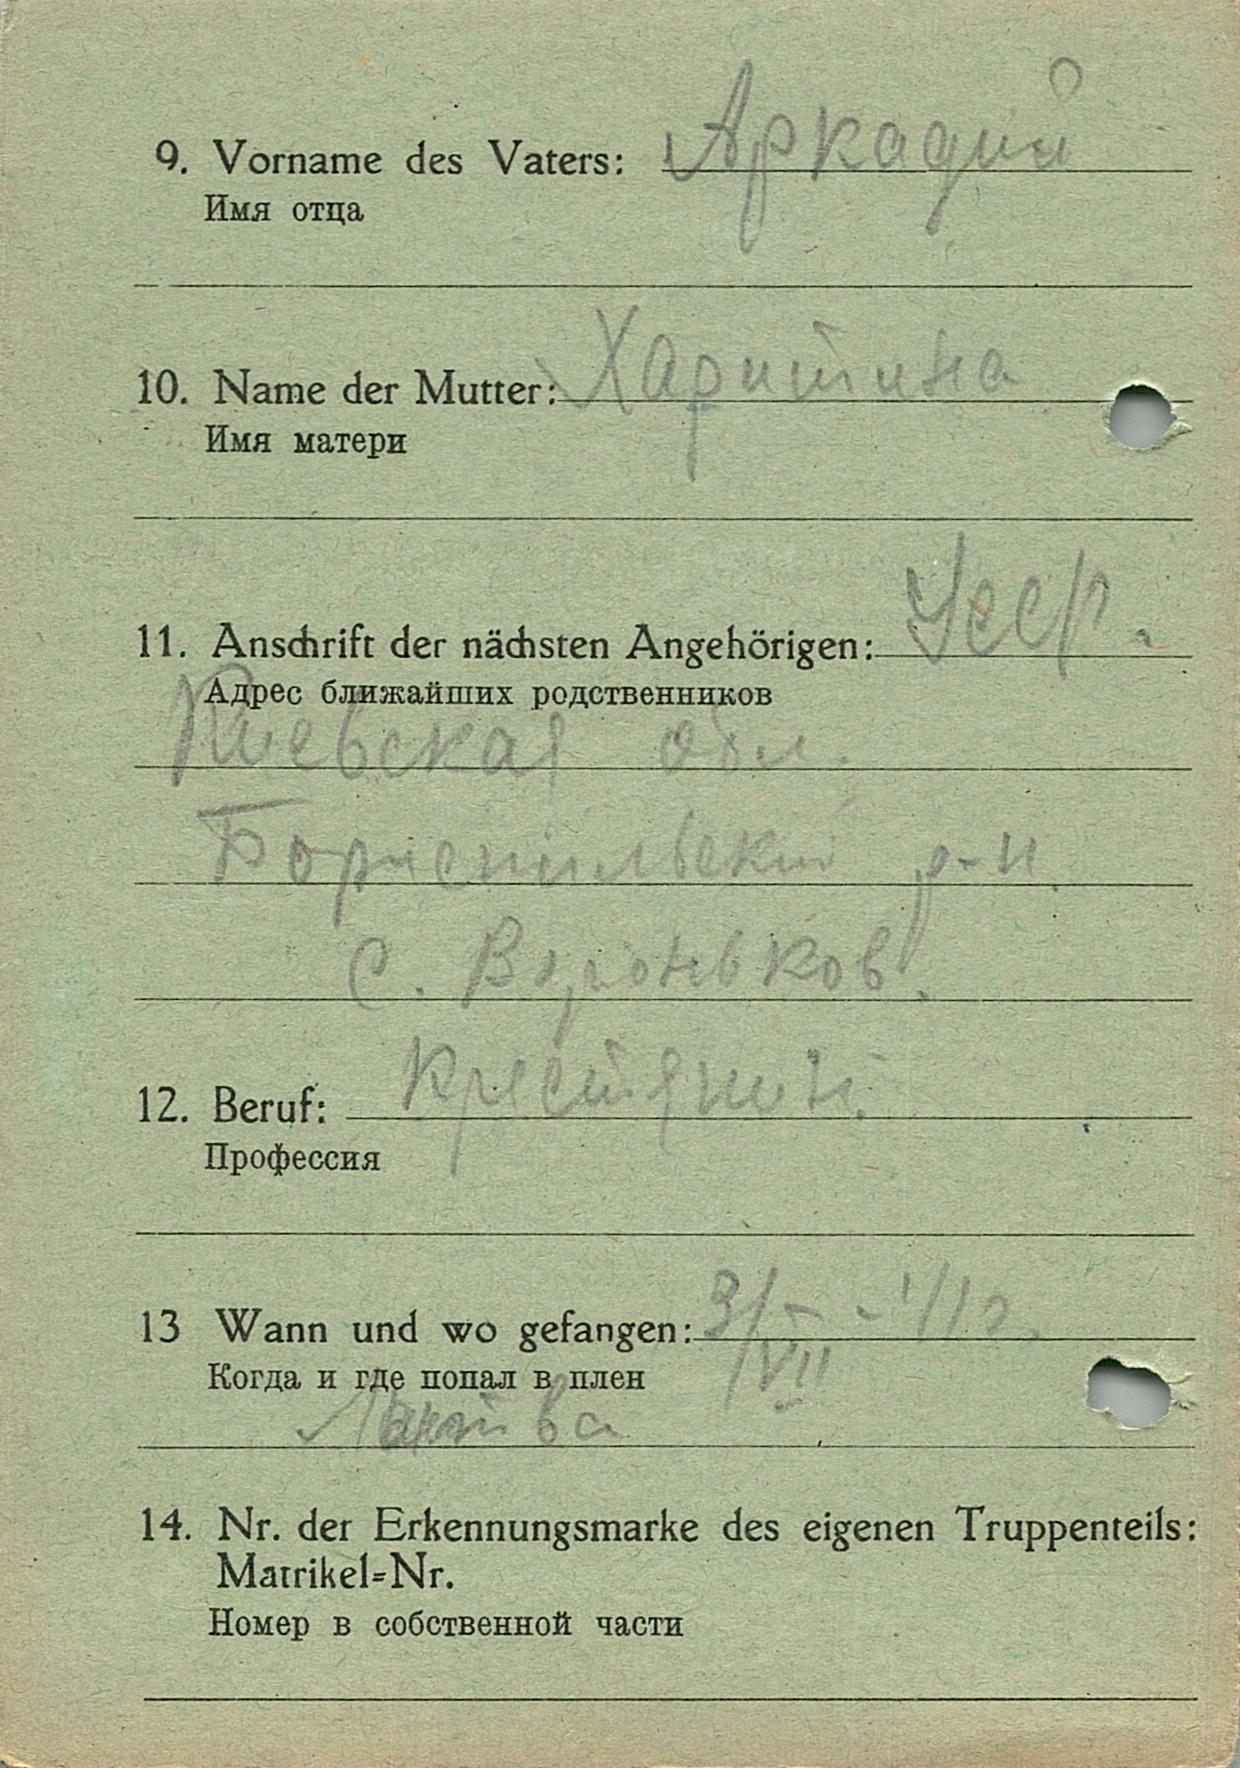 9. Vorname des Vaters: Аркадий
Имя отца
10. Name der Mutter: Харитина
Имя матери
11. Anschrift der nächsten Angehörigen: Усср.
Адрес ближайших родственников
Киевская обл.
Бориспильский р-н.
С. Вороньков.
12. Beruf: Крестянин.
Профессия
13 Wann und wo gefangen: 3/VII -
Когда и где попал в плен
14. Nr. der Erkennungsmarke des eigenen Truppenteils:
Matrikel=Nr.
Номер в собственной части